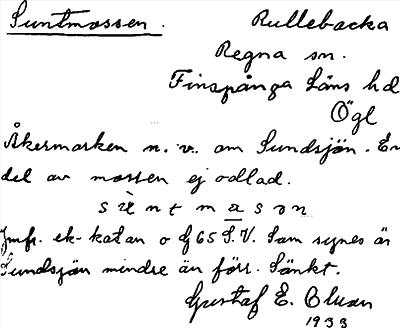 Suntmossen. Rullebacka
Regna sn.
Finspånga Läns hd
Ögl
Åkermarken n. v. om Sundsjön. En
del av mossen ej odlad.
sùntmasən
Jmfr. ek-kartan o G65 S.V. Som synes är
Sundsjön mindre än förr. Sänkt.
Gustaf E.
1933